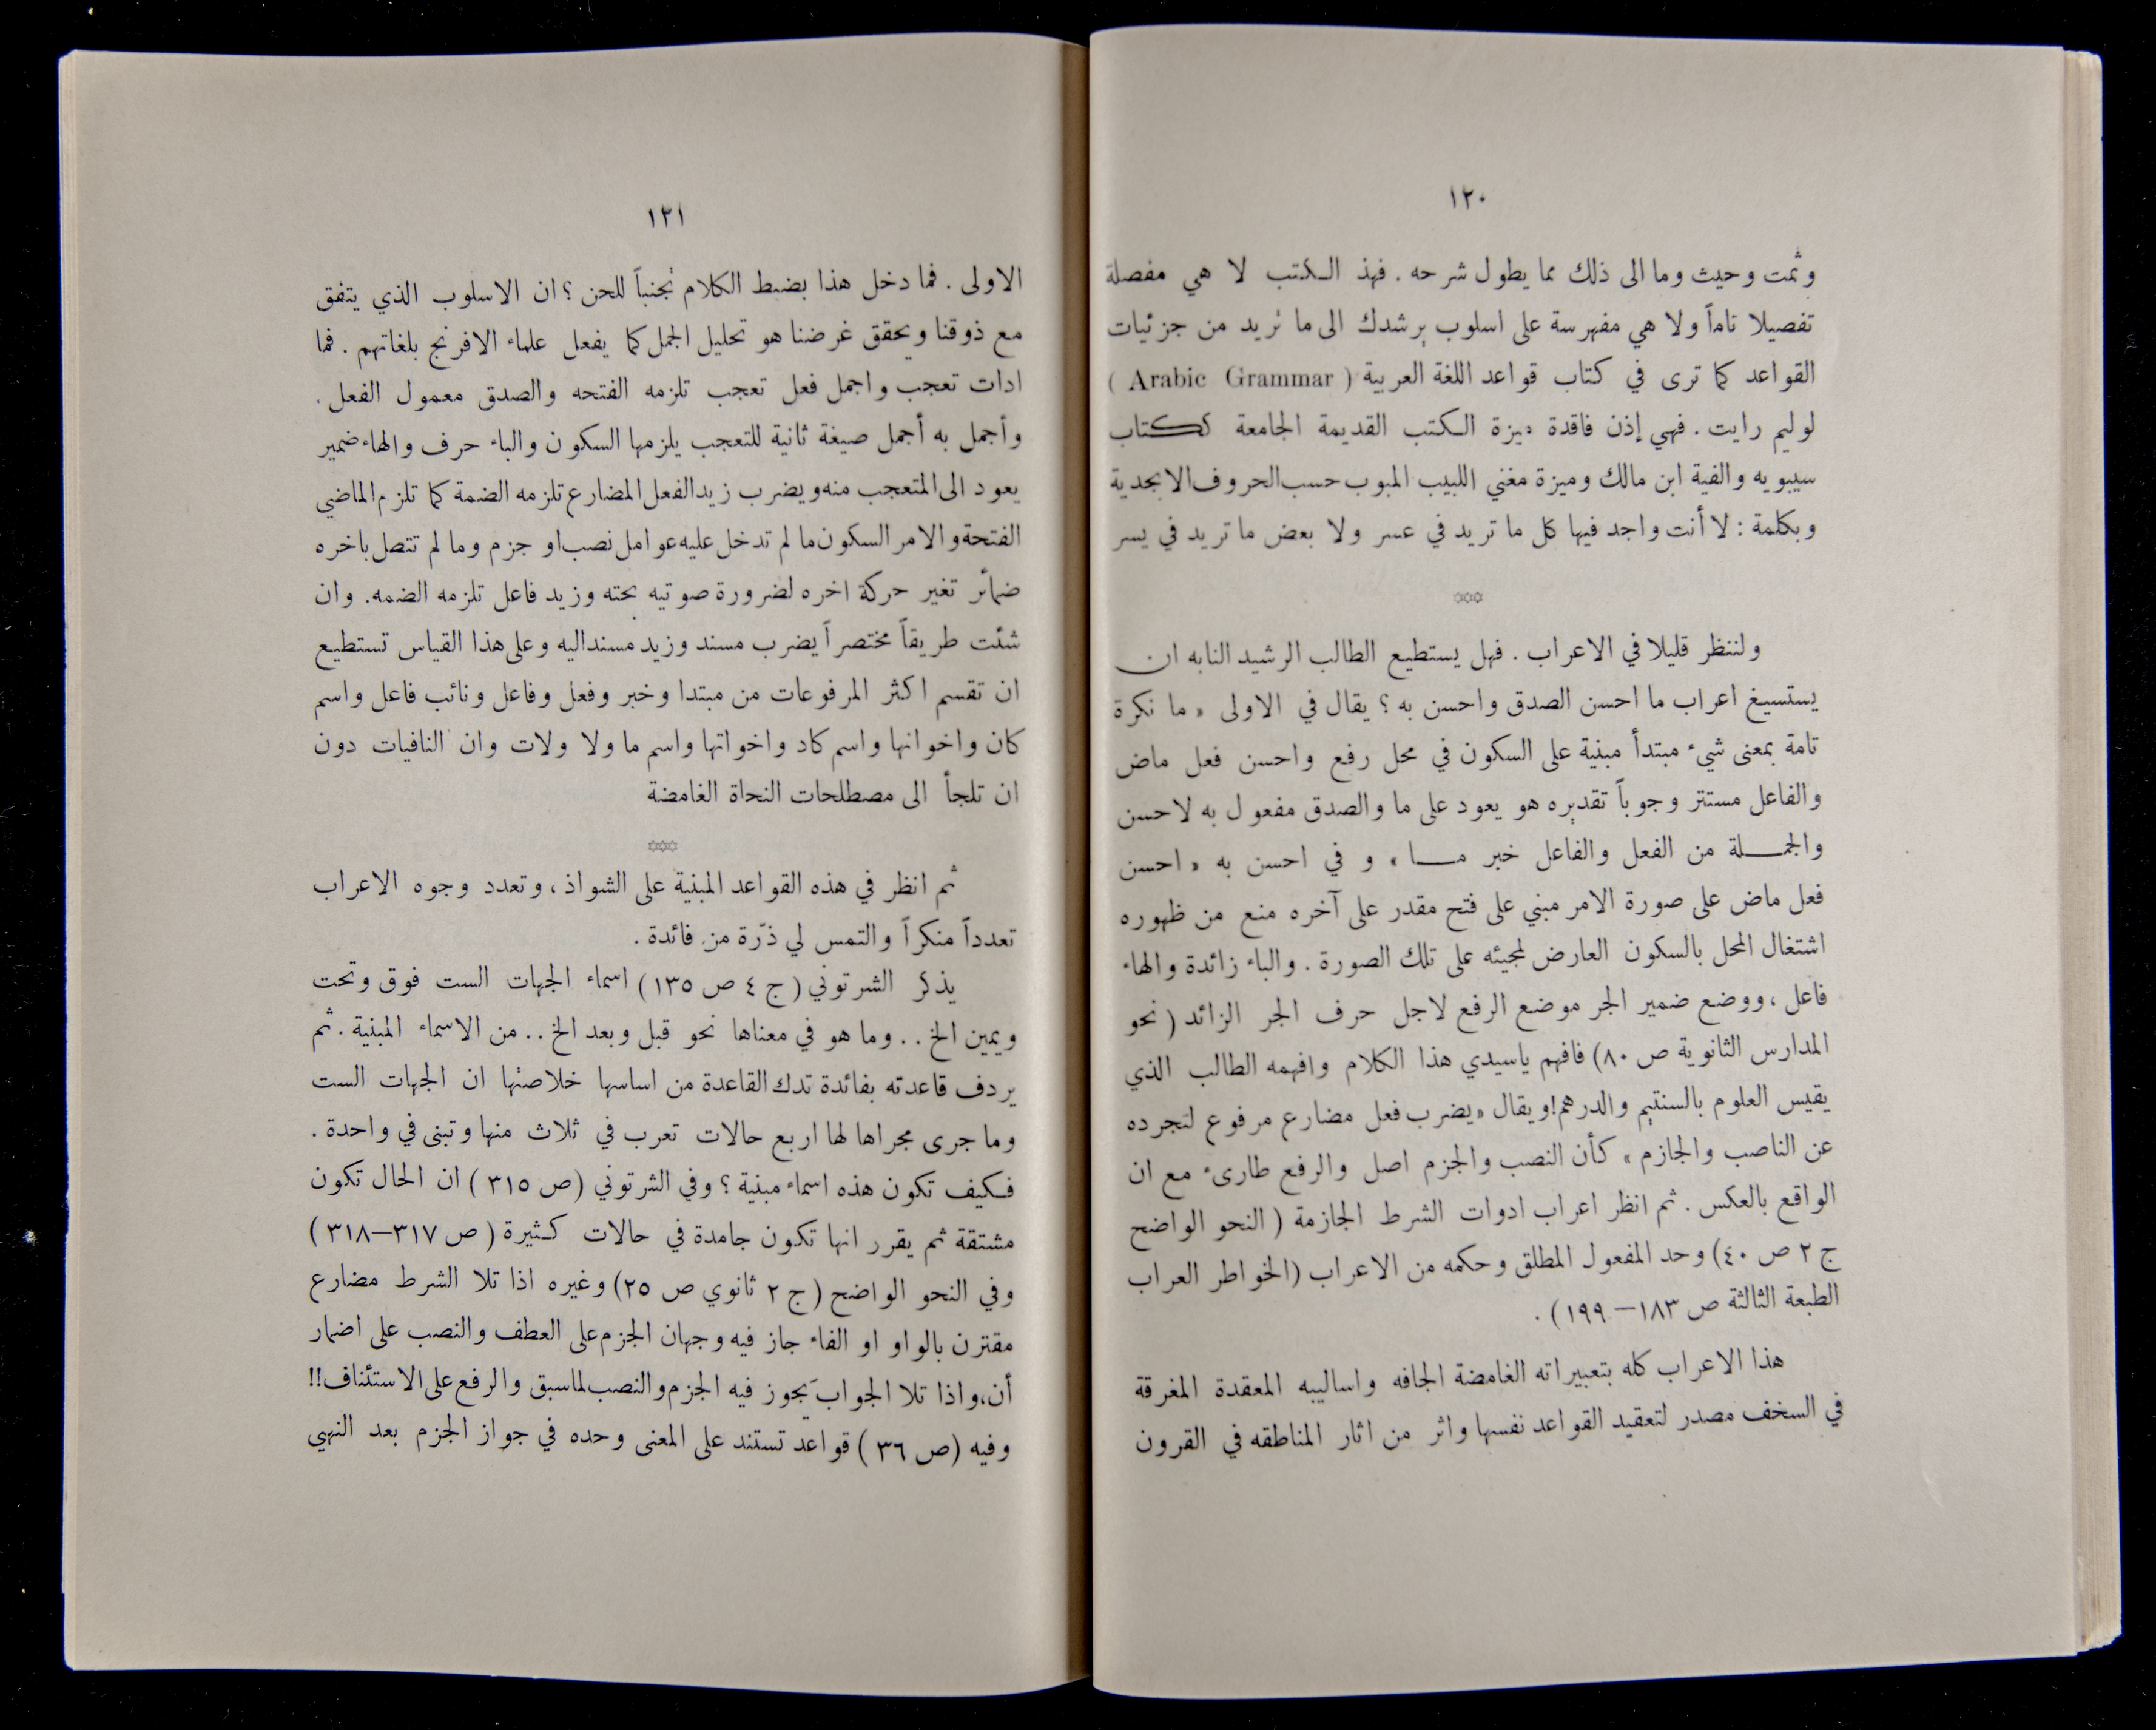 ١٢٠
وثمت وحيث وما الى ذلك مما يطول شرحه . فهذ الكتب لا هي مفصلة
تفصيلا تاماً ولا هي مفهرسة على اسلوب يرشدك الى ما تريد من جزئيات
القواعد كما ترى في كتاب قواعد اللغة العربية ( Arabic Grammar )
لوليم رايت . فهي إذن فاقدة ميزة الكتب القديمة الجامعة ككتاب
سيبويه والفية ابن مالك وميزة مغني اللبيب المبوب حسب الحروف الابجدية
وبكلمة : لا أنت واجد فيها كل ما تريد في عسر ولا بعض ما تريد في يسر
***
ولننظر قليلا في الاعراب . فهل يستطيع الطالب الرشيد النابه ان
يستسيغ اعراب ما احسن الصدق واحسن به ؟ يقال في الاولى « ما نكرة
تامة بمعنى شيء مبتدأ مبنية على السكون في محل رفع واحسن فعل ماض
والفاعل مستتر وجوباً تقديره هو يعود على ما والصدق مفعول به لاحسن
والجملة من الفعل والفاعل خبر ما » و في احسن به « احسن
فعل ماض على صورة الامر مبني على فتح مقدر على آخره منع من ظهوره
اشتغال المحل بالسكون العارض لمجيئه على تلك الصورة . والباء زائدة والهاء
فاعل ، ووضع ضمير الجر موضع الرفع لاجل حرف الجر الزائد ( نحو
المدارس الثانوية ص ٨٠) فافهم ياسيدي هذا الكلام وافهمه الطالب الذي
يقيس العلوم بالسنتيم والدرهم! ويقال « يضرب فعل مضارع مرفوع لتجرده
عن الناصب والجازم » كأن النصب والجزم اصل والرفع طارىء مع ان
الواقع بالعكس . ثم انظر اعراب ادوات الشرط الجازمة ( النحو الواضح
ج ٢ ص ٤٠) وحد المفعول المطلق وحكمه من الاعراب (الخواطر العراب
الطبعة الثالثة ص ١٨٣—١٩٩) .
هذا الاعراب كله بتعبيراته الغامضة الجافه واساليبه المعقدة المغرقة
في السخف مصدر لتعقيد القواعد نفسها واثر من اثار المناطقه في القرون
١٢١
الاولى . فما دخل هذا بضبط الكلام تجنباً للحن ؟ ان الاسلوب الذي يتفق
مع ذوقنا ويحقق غرضنا هو تحليل الجمل كما يفعل علماء الافرنج بلغاتهم . فما
ادات تعجب واجمل فعل تعجب تلزمه الفتحه والصدق معمول الفعل .
وأجمل به أجمل صيغة ثانية للتعجب يلزمها السكون والباء حرف والهاء ضمير
يعود الى المتعجب منه ويضرب زيد الفعل المضارع تلزمه الضمة كما تلزم الماضي
الفتحة والامر السكون ما لم تدخل عليه عوامل نصب او جزم وما لم تتصل باخره
ضمائر تغير حركة اخره لضرورة صوتيه بحته وزيد فاعل تلزمه الضمه. وان
شئت طريقاً مختصراً يضرب مسند وزيد مسند اليه وعلى هذا القياس تستطيع
ان تقسم اكثر المرفوعات من مبتدا وخبر وفعل وفاعل ونائب فاعل واسم
كان واخوانها واسم كاد واخواتها واسم ما ولا ولات وان النافيات دون
ان تلجأ الى مصطلحات النحاة الغامضة
***
ثم انظر في هذه القواعد المبنية على الشواذ ، وتعدد وجوه الاعراب
تعدداً منكراً والتمس لي ذرّة من فائدة .
يذكر الشرتوني ( ج ٤ ص ١٣٥ ) اسماء الجهات الست فوق وتحت
ويمين الخ . . وما هو في معناها نحو قبل وبعد الخ . . من الاسماء المبنية . ثم
يردف قاعدته بفائدة تدك القاعدة من اساسها خلاصتها ان الجهات الست
وما جرى مجراها لها اربع حالات تعرب في ثلاث منها وتبنى في واحدة .
فكيف تكون هذه اسماء مبنية ؟ وفي الشرتوني (ص ٣١٥ ) ان الحال تكون
مشتقة ثم يقرر انها تكون جامدة في حالات كثيرة ( ص ٣١٧—٣١٨ )
وفي النحو الواضح ( ج ٢ ثانوي ص ٢٥) وغيره اذا تلا الشرط مضارع
مقترن بالواو او الفاء جاز فيه وجهان الجزم على العطف والنصب على اضمار
أن، واذا تلا الجواب يجوز فيه الجزم والنصب لما سبق والرفع على الاستئناف!!
وفيه (ص ٣٦ ) قواعد تستند على المعنى وحده في جواز الجزم بعد النهي